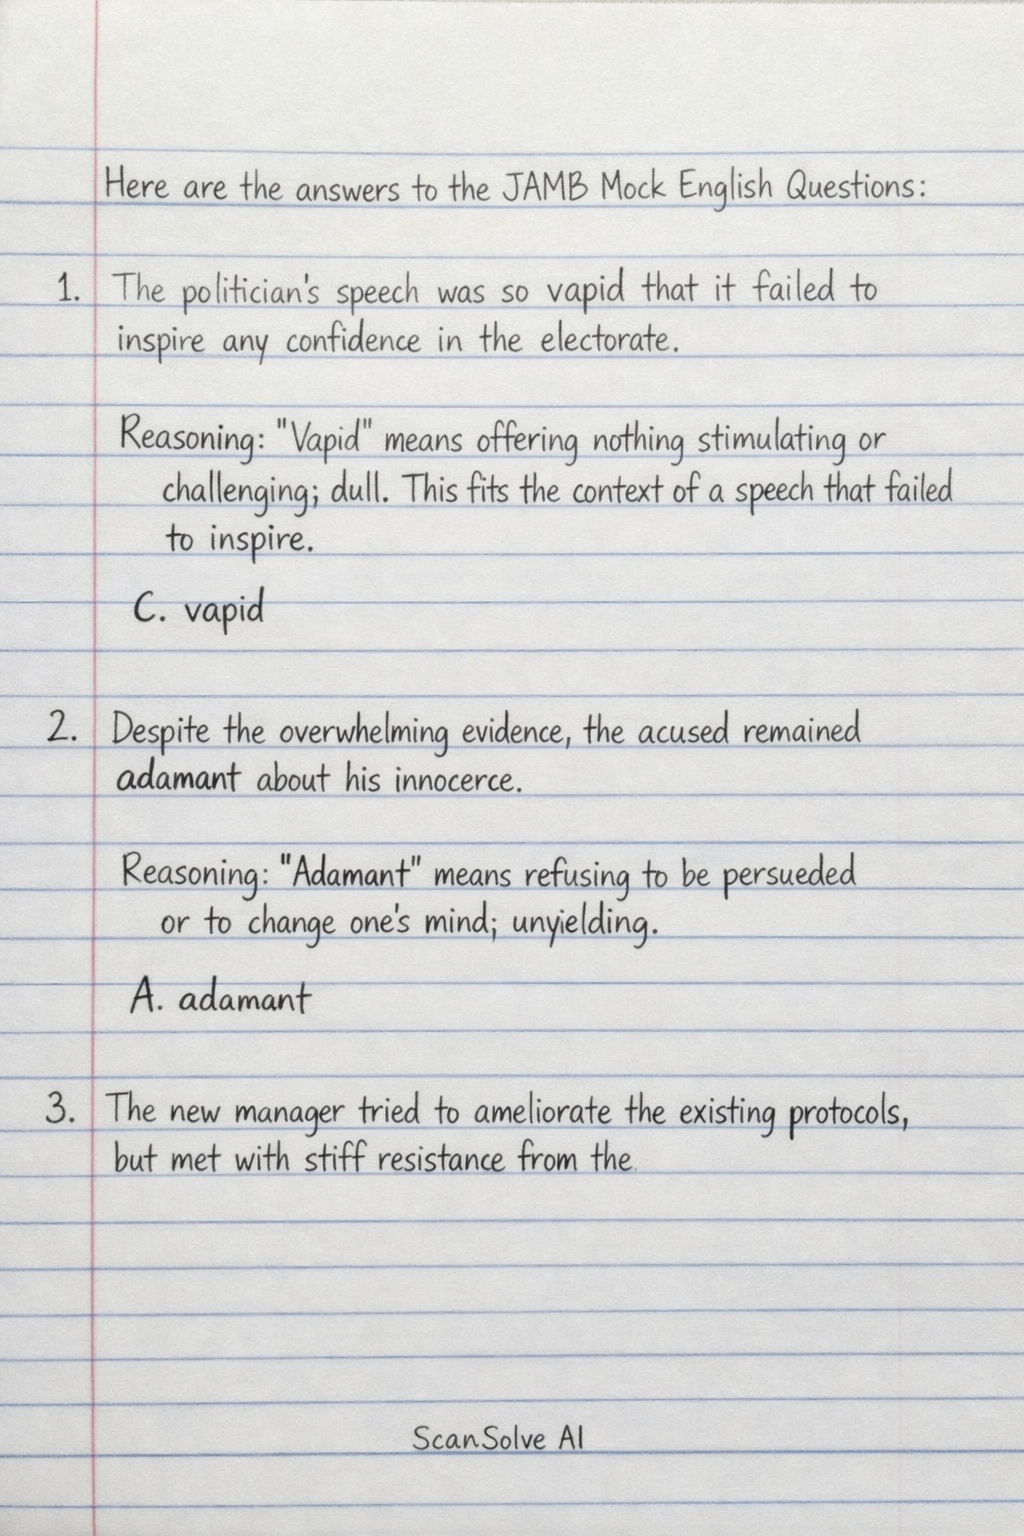 Here are the answers to the JAMB Mock English Questions:
1. The politician's speech was so vapid that it failed to
inspire any confidence in the electorate.
Reasoning: "Vapid" means offering nothing stimulating or
challenging; dull. This fits the context of a speech that failed
to inspire.
C. vapid
2. Despite the overwhelming evidence, the acused remained
adamant about his innocerce.
Reasoning: "Adamant" means refusing to be persueded
or to change one's mind; unyielding.
A. adamant
3. The new manager tried to ameliorate the existing protocols,
but met with stiff resistance from the
ScanSolve AI